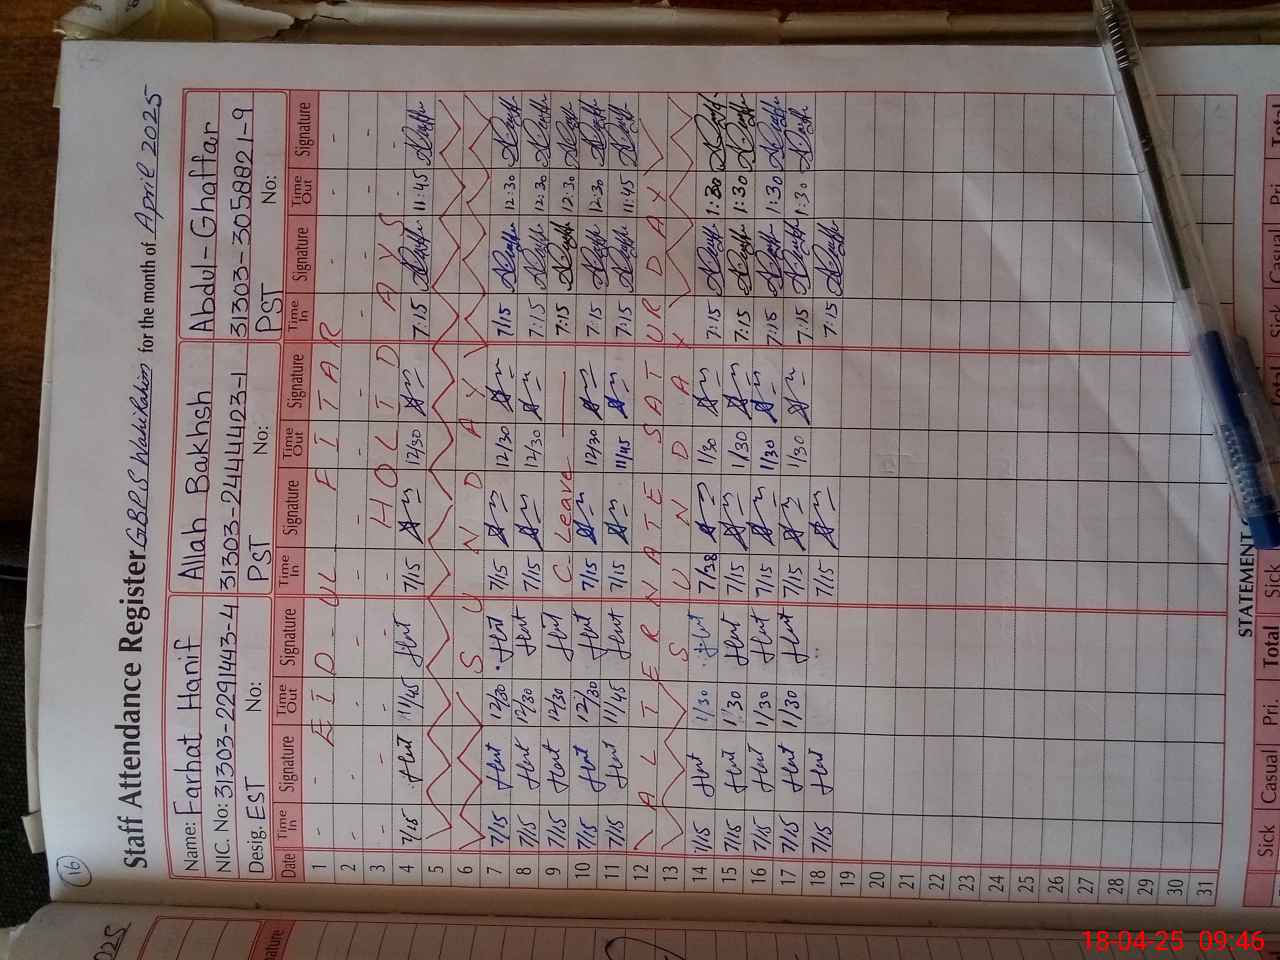 16
Staff Attendance Register GBPS Wahi Rahim for the month of April 2025
Name: Farhat Hanif Allah Bakhsh Abdul-Ghaffar
NIC. No: 31303-2291443-4 31303-2444423-1 31303-3058821-9
Desig. EST No: PST No: PST No:
Date Time In Signature Time Out Signature Time In Signature Time Out Signature Time In Signature Time Out Signature
1 - - EID - UL - FITAR - - -
2 - - - - - - -
3 - - - HOLIDAYS - -
4 7/15 11/45 7/15 12/30 7:15 11:45
5
6 SUNDAY
7 7/15 12/30 7/15 12/30 7/15 12:30
8 7/15 12/30 7/15 12/30 7:15 12:30
9 7/15 12/30 C-Leave 7:15 12:30
10 7/15 12/30 7/15 12/30 7:15 12:30
11 7/15 11/45 7/15 11/45 7:15 11:45
12 ALTERNATE SATURDAY
13 SUNDAY
14 7/15 1/30 7/38 1/30 7:15 1:30
15 7/15 1/30 7/15 1/30 7:15 1:30
16 7/15 1/30 7/15 1/30 7:15 1:30
17 7/15 1/30 7/15 1/30 7:15 1:30
18 7/15 7/15 7:15
19
20
21
22
23
24
25
26
27
28
29
30
31
STATEMENT
Sick Casual Pri. Total Sick Casual Pri. Total
025
Signature
18-04-25 09:46